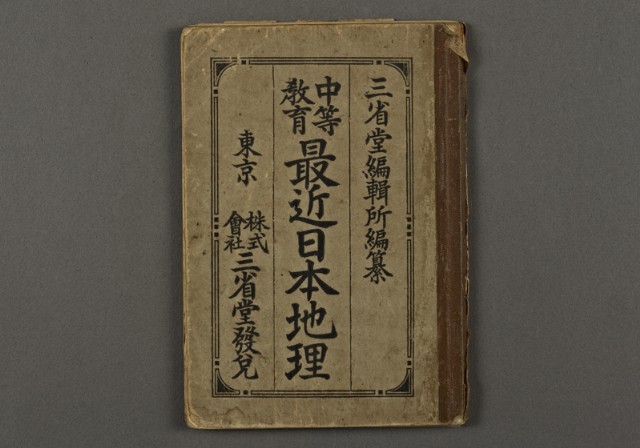 三省堂編輯所編纂
中等教育最近日本地理
東京 株式會社三省堂發兌